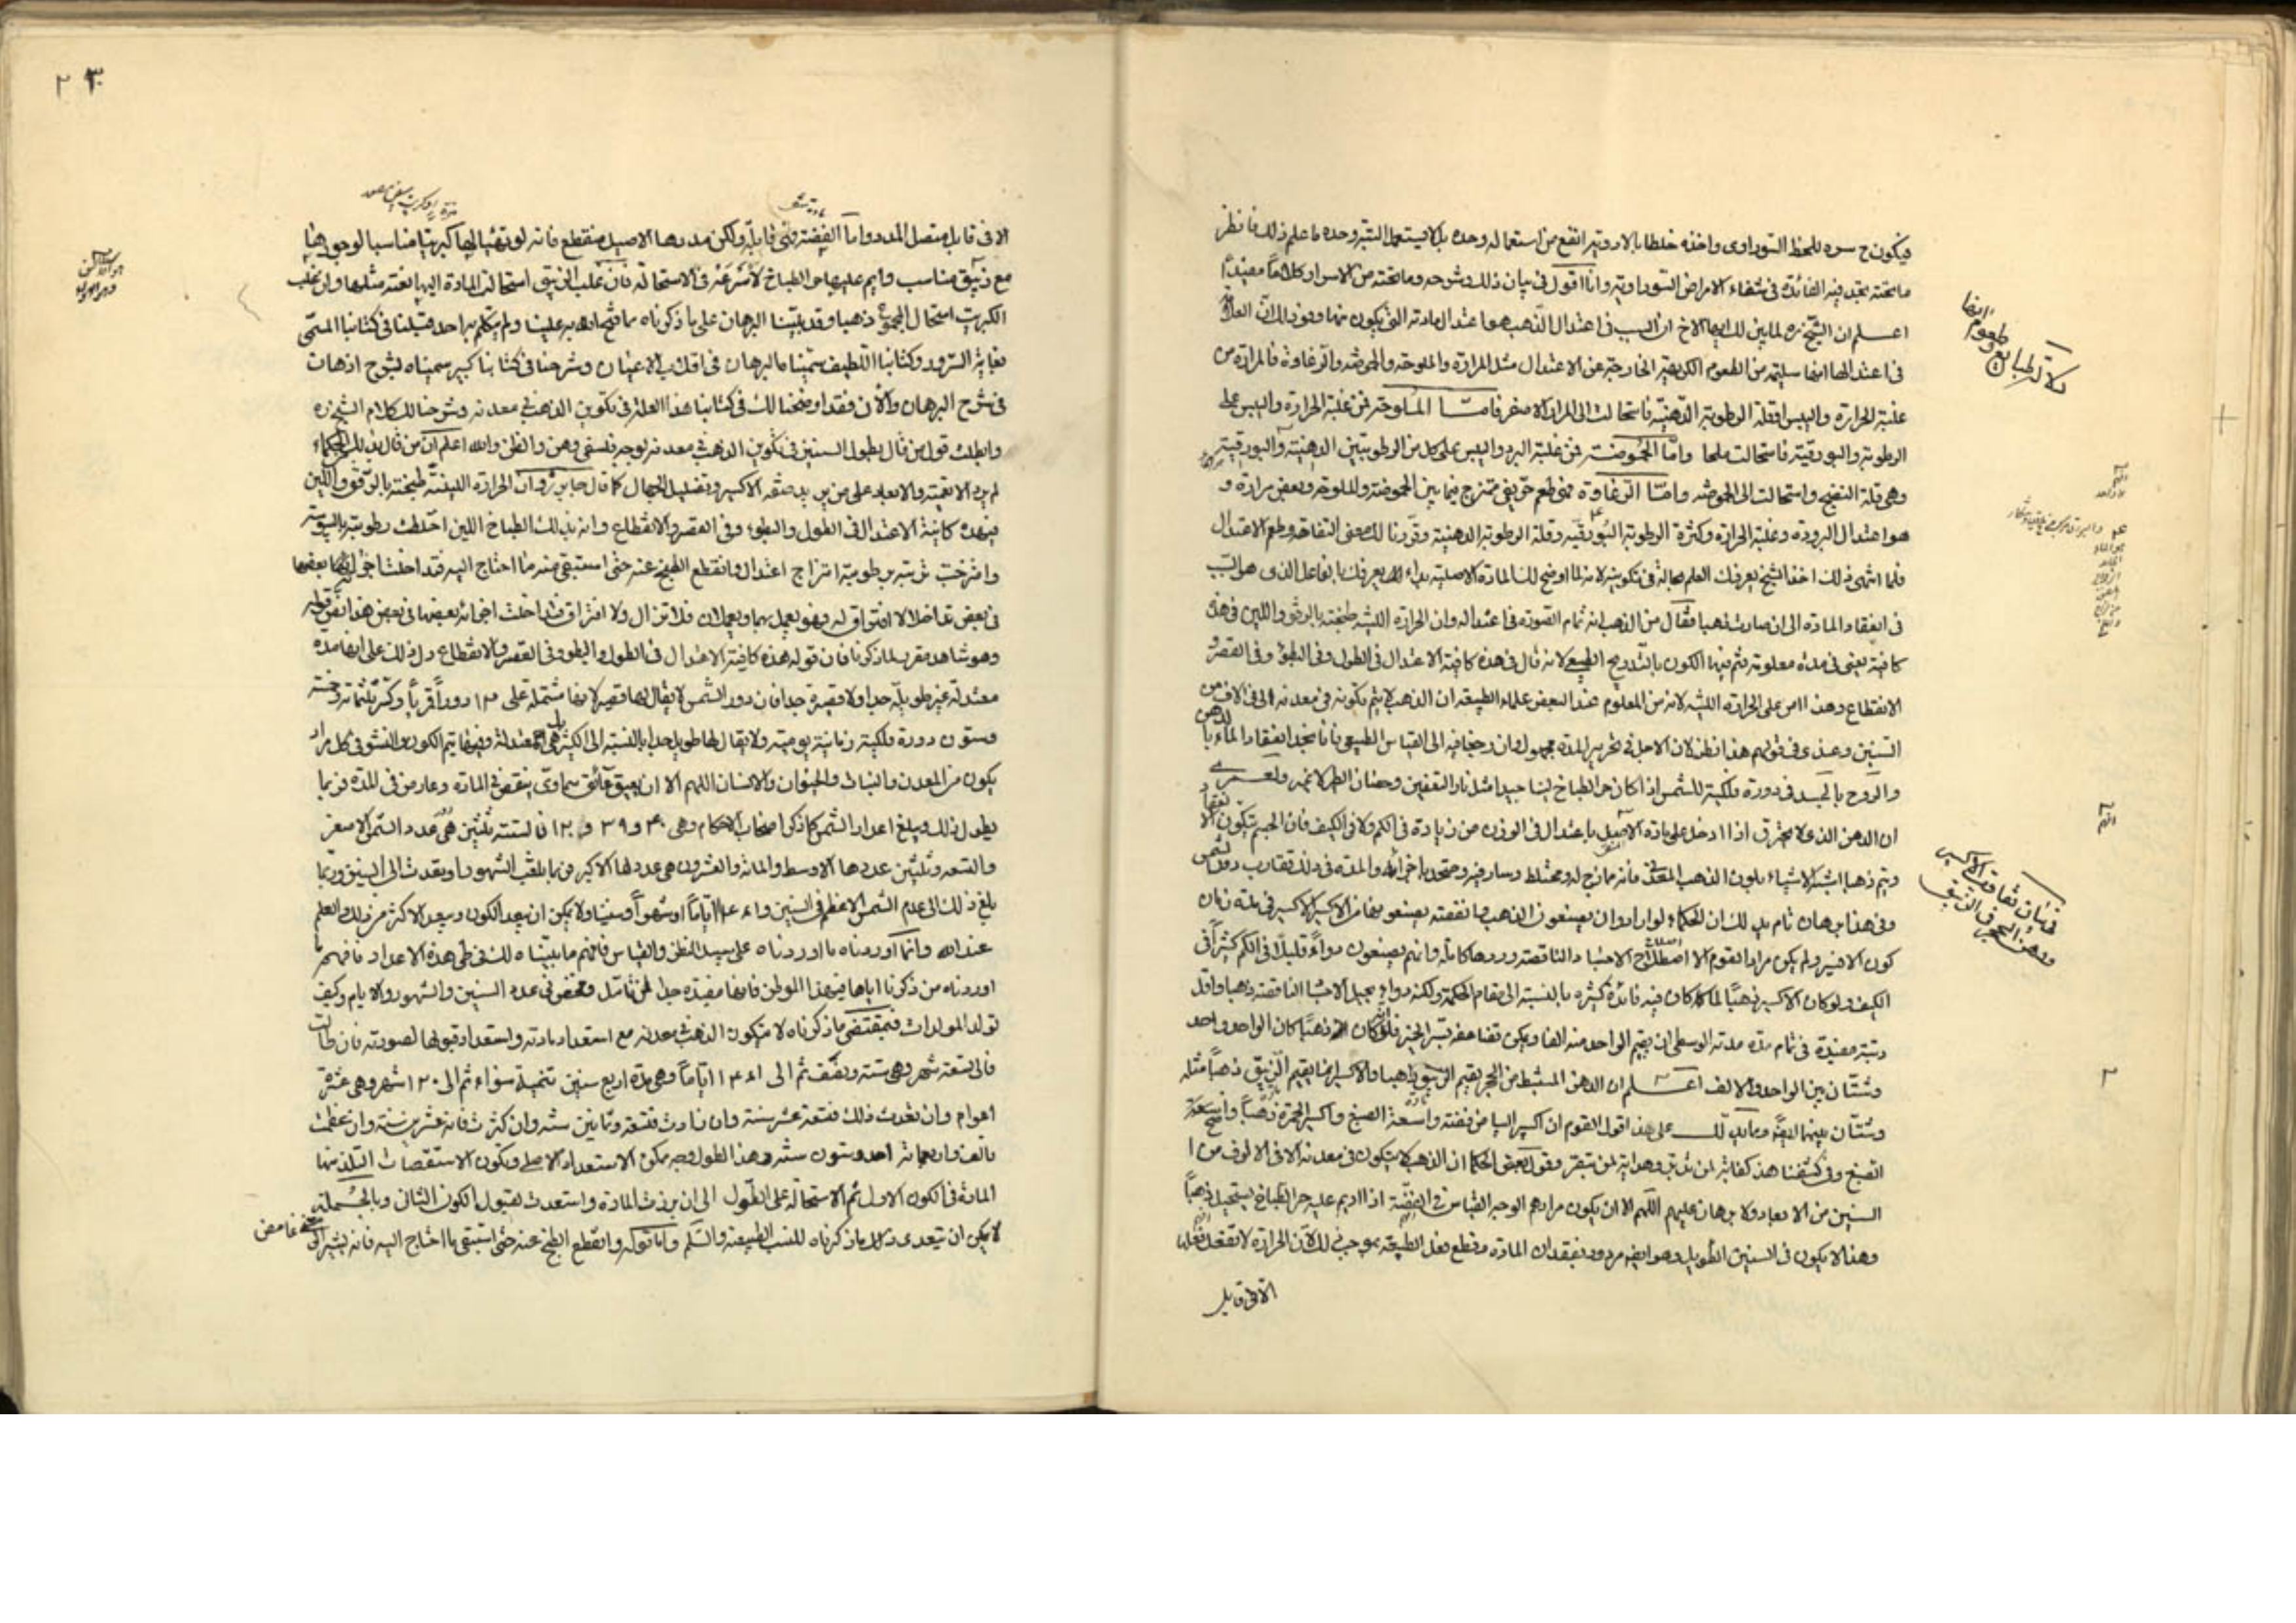 فيكون ح سره للخط السوداوى واخذه خلطا بالادوية انفع من استعماله وحده بل لا يستعمل التبر وحده ما علم ذلك فانظر
ما تحته تجد فيه الفائدة فى شفاء الامراض السوداوية وانا اقول فى بيان ذلك وشرحه وما تحته من الاسرار كلاما مفيدا
اعلم ان الشيخ ره لما بين لك ايها الاخ ان السبب فى اعتدال الذهب هو اعتدال مادته التى يكون منها
فى اعتدالها انها سليمة من الطعوم الكريهة الخارجة عن الاعتدال مثل المرارة والملوحة والحموضة والزعاوة فالمرارة من
غلبة الحرارة واليبس وقلة الرطوبة الدهنية فاستحالت الى المرار الاصفر فامّا الملوحة فمن غلبة الحرارة واليبس على
الرطوبة والبورقية فاستحالت ملحا وامّا الحموضة فمن غلبة البرد واليبس على كل من الرطوبتين الدهنية والبورقية
وهى قلة النضج واستحالت الى الحموضة وامّا الزعاوة فهى طعم حريفى ممتزج فيما بين الحموضة والملوحة وبعض مرارة و
هو اعتدال البرودة وغلبة الحرارة وكثرة الرطوبة البورقيه وقلة الرطوبة الدهنية وقررنا لك معنى التفاهة وطعم الاعتدال
فلما انتهى ذلك اخذ الشيخ يعرفك العلم بحاله فى تكوينه لانه لما اوضح لك المادة الاصلية بداء لك يعرفك بالفاعل الذى هو السبب
فى انعقاد المادة الى ان صارت ذهبا فقال من الذهب انه تمام الصورة فى اعتداله وان الحرارة اللينه طبخته بالرفق واللين فى هذه
كافية يعنى فى مده معلومة يتم فيها الكون بالتدريج الطبيعى لانه قال فى هذه كافية الاعتدال فى الطول وفى البطؤ وفى القصر و
الانقطاع وهذا من على الحرارة اللينه لانه من المعلوم عند البعض علماء الطبيعه ان الذهب لا يتم تكونه فى معدنه الا فى الاف من
السنين وعندى فى قولهم هذا نظر لان الاصل فى تحرير المدة مجهول وان رجعنا فيه الى القياس الطبيعى فانا نجد انعقاد الماء بالدهن
والروح بالجسد فى دورة فلكية للشمس اذا كان حر الطباخ لينا جيدا مثل نار التعفين وحضان الطير لا غير ولعمرى
ان الدهن الذى لا يحترق اذا ادخل على مادة الاصيل باعتدال فى الوزن من زيادة فى الكم ولا فى الكيف فان الجسم يتكون
ويتم ذهبا اشبه الاشياء بلون الذهب المعدنى فانه مازج له ومختلط وسار فيه ومتحد باجزائه والمدة فى ذلك تقارب دور الشمس
وفى هذا برهان تام يدلك ان الحكماء لو ارادوا ان يصنعوا الذهب والفضة يصنعوهما من الاكسير فى مدة زمان
كون الاخير ولم يكن مراد القوم الا اصطلاح الاجساد الناقصة وردها كاملة وانهم يصنعون دواءً قليلا فى الكم كثيرا فى
الكيف ولو كان الاكسير ذهبًا لما كان فيه فائدة كثيره بالنسبة الى مقام الحكمة ولكنه دواء يحيل الاجساد الناقصة ذهبا واقل
رتبة مفيدة فى تمام مده مدته الوسطى ان يقيم الواحد منه الفا ويمكن تضاعفه فلو كان ذهبًا كان الواحد واحد
وشتّان بين الواحد والالف اعلم ان الدهن المستنبط من الحجر يقيم الزيبق ذهبا والاكسير انما يقيم الزيبق ذهبا مثله
وشتّان بينهما ايضًا ومما يدلك على هذا قول القوم ان اكسير البياض فضة واسعة الصبغ واكسير الحمرة ذهبًا واسعة
الصبغ وفى كشفنا هذا كفاية لمن تدبر وهداية لمن تبصر وقول بعض الحكما ان الذهب لا يتكون فى معدنه الا فى الالوف من ا
السنين من الابعاد ولا برهان عليهم اللهم الا ان يكون مرادهم الوجه القياس فى الفضة اذا اديم عليه حر الطباخ يستحيل ذهبًا
وهذا لا يكون فى السنين الطويل وهو ايضا مردود بفقدان المادة وقطع فعل الطبيعة بموجب ذلك لان الحرارة لا تفعل فعلها
الا فى قابل
دلالة الطبايع
وطعومها
فى بيان تفاوت الاكسير
ودهن الحجر فى الزيبق
٢
٢٣
الا فى قابل متصل المدد واما الفضة فهى قابلة ولكن مددها الاصيل منقطع فانه لو تهيأ لها كبريتا مناسبا لوجودها
مع زيبق مناسب وايم عليها حر الطباخ لاسرعت فى الاستحالة فان غلب الزيبق استحالت المادة اليها فضة مثلها وان غلب
الكبريت استحال المجموع ذهبا وقد بيّنا البرهان على ما ذكرناه مما فتح الله به علينا ولم يتكلم به احد قبلنا فى كتابنا المسمى
بغاية السرور وكتابنا اللطيف سميناه بالبرهان فى وشرحنا فى كتابنا كبير سميناه
فى شرح البرهان والان فقد اوضحنا لك فى كتابنا هذا العلة فى تكوين الذهب فى معدنه وشرحنا لك كلام الشيخ ره
وابطلت قول من قال بطول السنين فى تكوين الذهب فى معدنه لوجه فلسفى وهن والظن والله اعلم ان من قال بذلك الحكماء
لم يرد الا تقية والابعاد على من يريد صنعة الاكسير وتضليل الجهال كما قال جابر وان الحرارة اللينة طبخته بالرفق واللين
فهذه كافية الاعتدال فى الطول والبطوء وفى القصر والانقطاع وانه بذلك الطباخ اللين اختلطت رطوبته بيبوسته
وامتزجت تربته برطوبة امتزاج اعتدال وانقطع الطبخ عنه حتى استبقى منه ما احتاج اليه فتداخلت اجزائها بعضها
فى بعض تداخلا لا افتراق له وهو يعمل بهما ويعملان فلا تزال ولا افتراق فتداخلت اجزائه بعضها فى بعض هذا نص قوله
وهو شاهد مقرر لما ذكرنا فان قوله هذه كافية الاعتدال فى الطول والبطؤ وفى القصر والانقطاع دل ذلك على انها مدة
معتدلة غير طويلة جدا ولا قصيرة جدا فان دور الشمس لا يقال لها قصير لانها مشتملة على ١٣ دوراً قمريا وكثر ثلثمائة وخمسة
وستون دورة فلكية زمانية يومية ولا يقال لها طويل جدا بالنسبة الى الكثير بل هى معتدلة وفيها يتم الكون والنشؤ فى كل مراد
يكون من المعدن والنبات والحيوان والانسان اللهم الا ان يعيق عائق سماوى بنقص فى المادة وعارض فى المدة فربما
يطول ذلك ويبلغ اعداد الشمس كما ذكر اصحاب الاحكام وهى ٣٩ و ١٢٠
والتسعه وثلثين عددها الاوسط والمائة والعشرون هى عددها الاكبر فربما بلغت الشهور او تعدت الى السنين وربما
بلغ ذلك الى عدد الشمس الاعظم فى السنين ١٤٦١ اياما او شهوراً وسنينا ولا يمكن ان يبعد الكون وبعد الاكثر من ذلك والعلم
عند الله وانما اوردناه ما اوردناه على سبيل الظن والقياس فافهم ما بيّناه لك فى طى هذه الاعداد فافهم ما
اوردناه من ذكرنا اياها فى هذا الموطن فانها مفيدة جدا لمن تامّل وتفحص فى عدد السنين والشهور والايام وكيف
تولد المولدات فبمقتضى ما ذكرناه لا يتكون الذهب بمعدنه مع استعداد مادته واستعداد قبولها لصورته فان طالت
فالى تسعة شهر وهى سنة ونصف ثم الى ١٤٦١ اياماً وهى مدة اربع سنين شمسية سواء ثم الى ١٢٠ شهر وهى عشرة
اعوام وان تعدت ذلك فتسعة عشر سنة وان زادت فتسعة وثمانين سنة وان كثرت فمائة عشرين سنة وان عظمت
فالف واربعمائة احد وستون سنة وهذا الطول وجه ممكن الاستعداد الاصلى ويكون الاستقصات البلد منها
المادة فى الكون الاول ثم الاستحالة على الطول الى ان برزت المادة واستعدت لقبول الكون الثانى وبالجملة
لا يمكن ان يتعدى ذلك ما ذكرناه للنسب الطبيعية والسلم واما قوله وانقطع الطبخ عنه حتى استبقى ما احتاج اليه فانه يشير الى معنى غامض